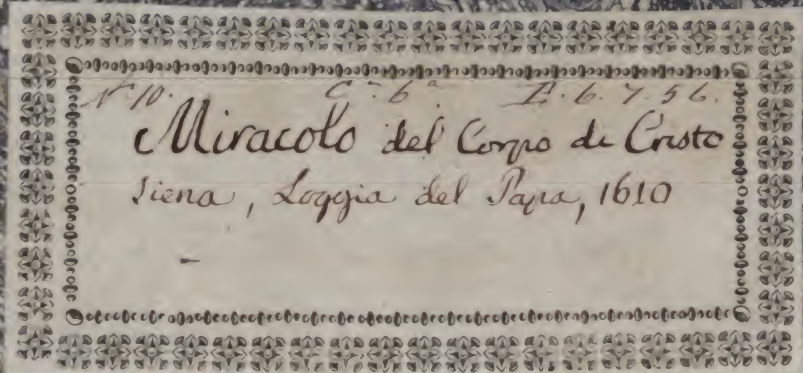 N.º 10. C.ª 6.ª E. 6. 7. 56.
Miracolo del Corpo di Cristo
Siena, Loggia del Papa, 1610